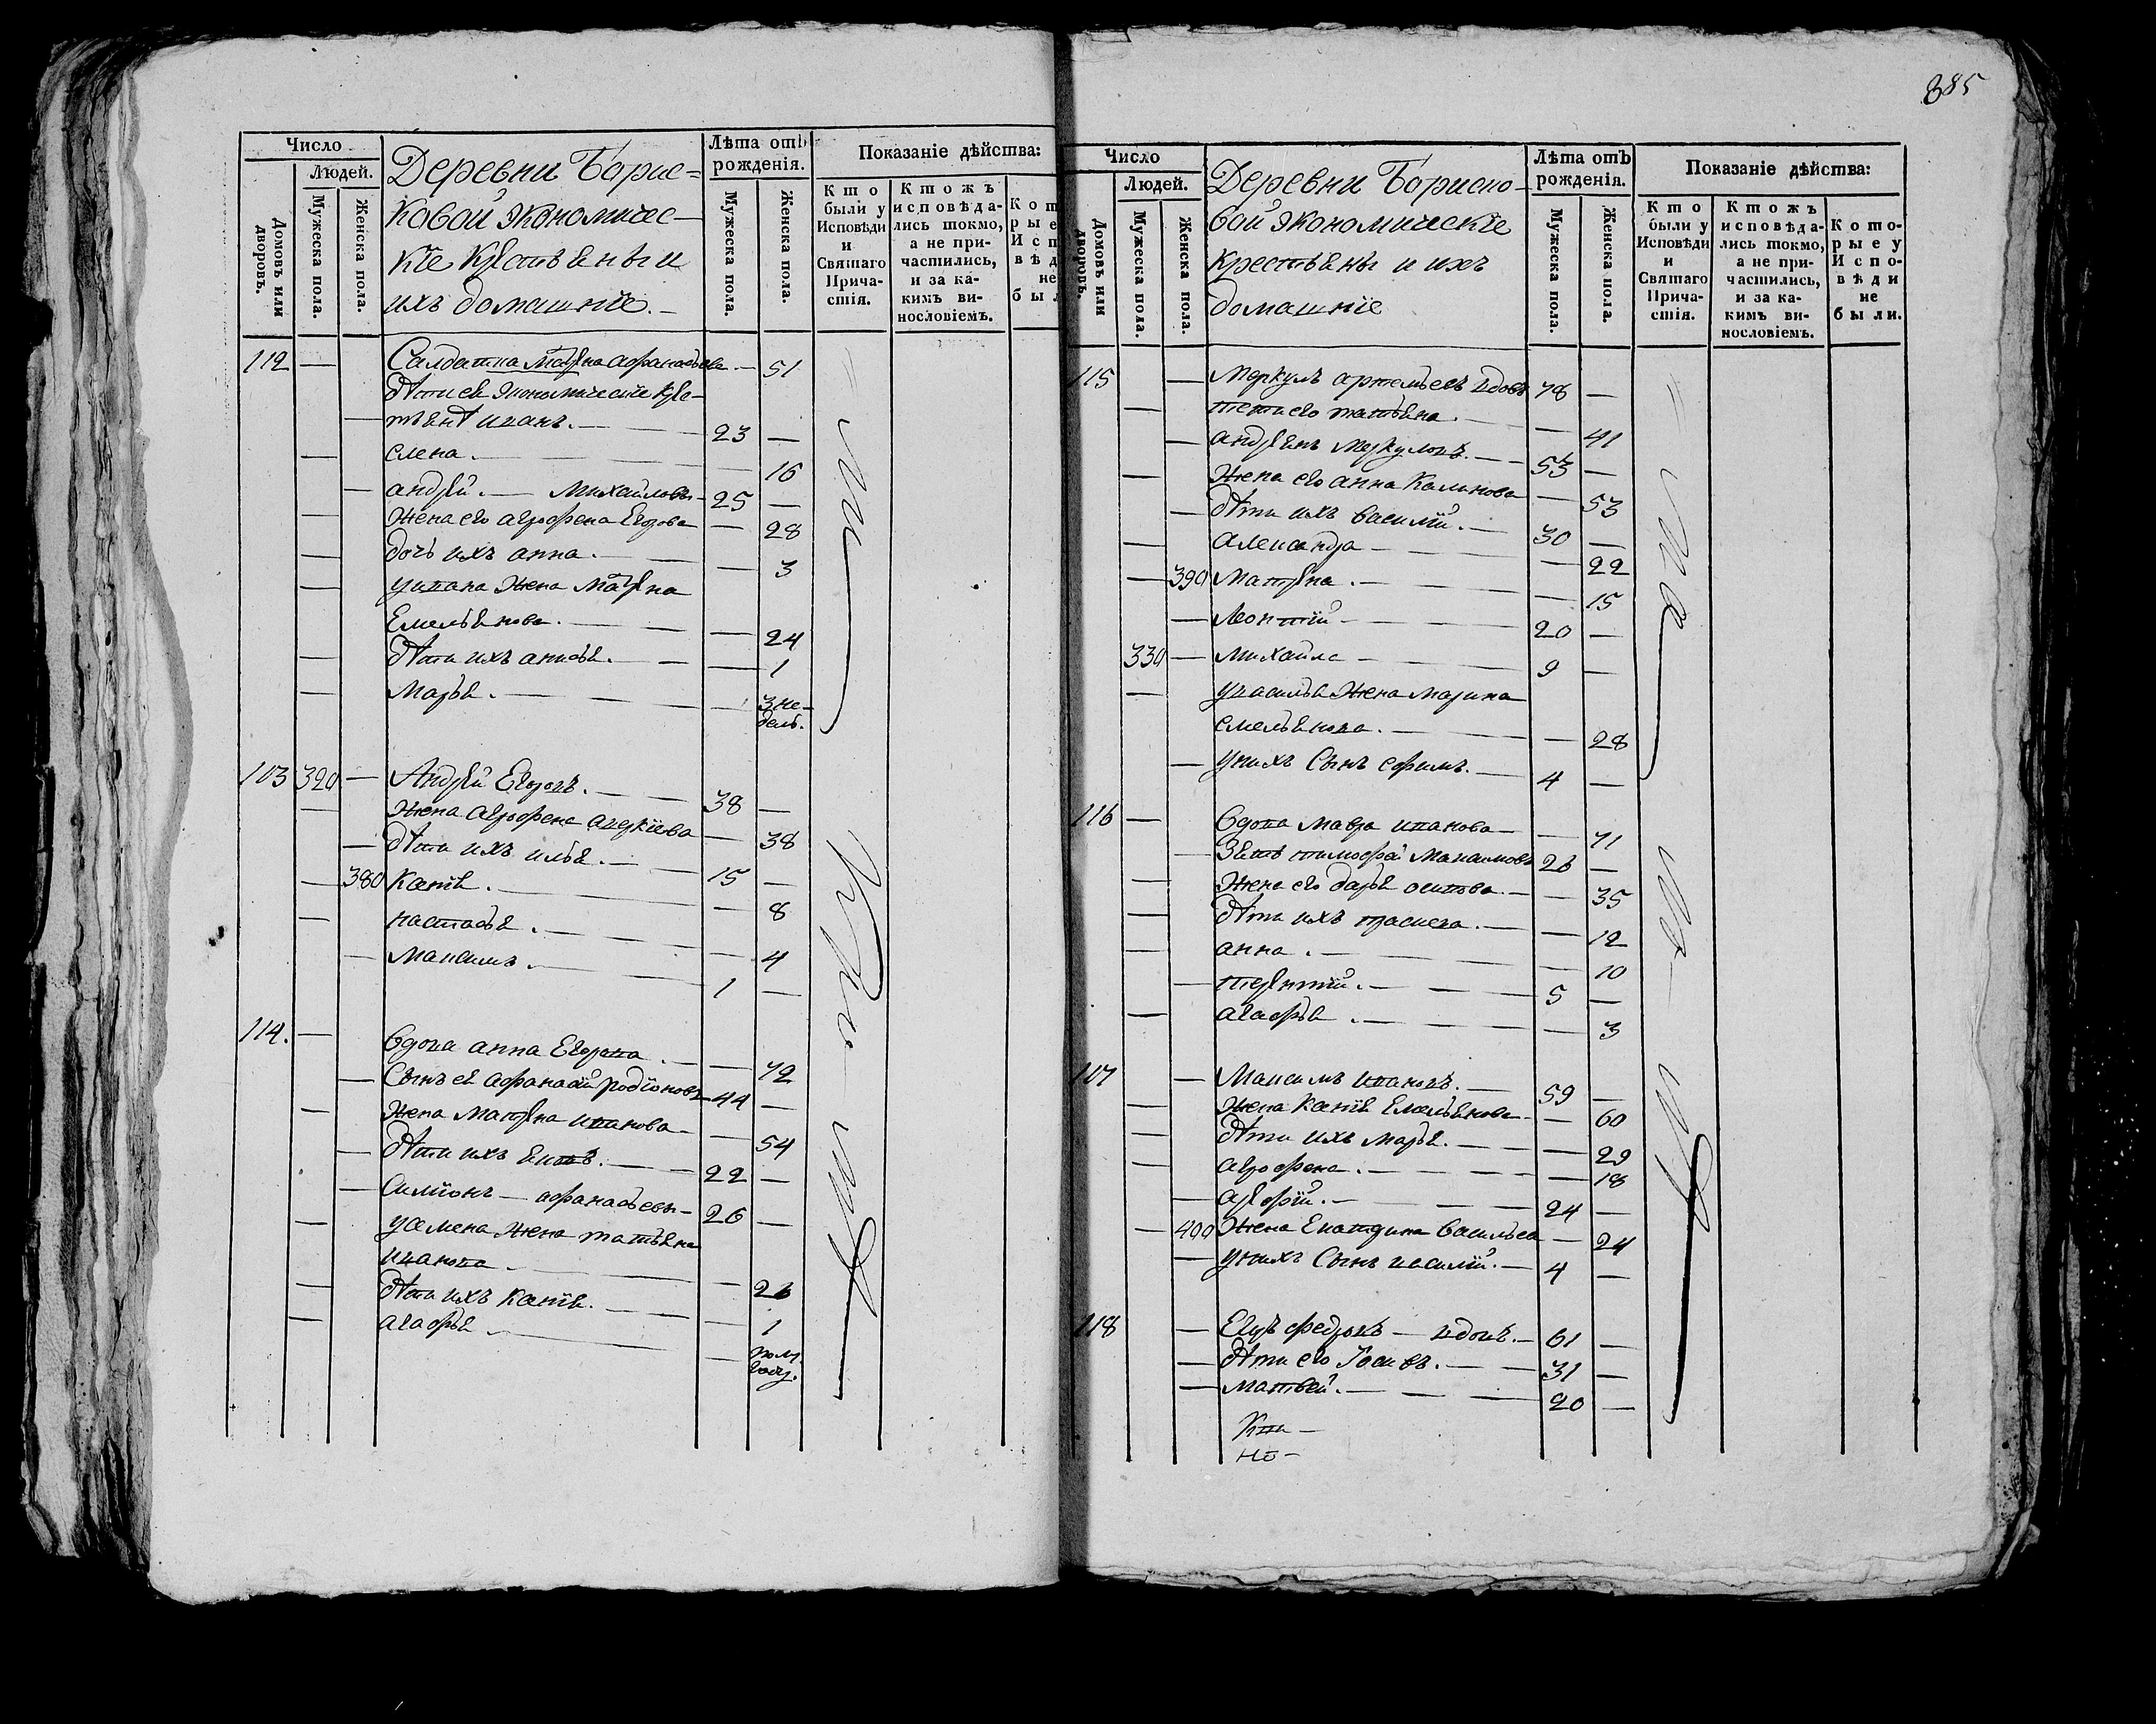 385
Число
Людей.
Домовъ или дворовъ.
Мужеска пола.
Женска пола.
Деревни Борис=
ковой экономичес-
кїе крестьяны и
ихъ домашнїе. -
Лѣта отъ рожденїя.
Мужеска пола.
Женска пола.
Показанїе дѣйства:
Кто были у Исповѣди и Святаго Прича-стїя.
Ктожъ исповѣда-лись токмо, а не при-частились, и за ка-кимъ ви-нословїемъ.
112 — Салдатка Матрена Афанасьева — 51
дѣти ея экономические кре-
— тьянѣ иванъ. — 23 —
— елена. — 16
— андрей. — Михайловы — 25 —
— Жена его агрофена Егорова — 28
— дочь ихъ анна. — 3
— у ивана Жена Матрена
Емельянова. — 24
— дѣти ихъ анисья. — 1
— Марья. — 3 не-
дель.
103 320 — Андрей Егоровъ. — 38 —
— Жена агрофена — 38
— дѣти ихъ илья. — 15 —
— 380 Ксенїя. — 8
— настасья. — 4
— Максимъ. — 1 —
114. — Вдова анна Егорова. — 72
— Сынъ ея афанасїй родїоновъ — 44 —
— Жена Матрена иванова — 54
— дѣти ихъ — 22 —
— Симїонъ — афанасьевы — 26 —
— у семена Жена татьяна
иванова — 26
— дѣти ихъ Ксенїя. — 1
— агафья — пол
году.
Число
Людей.
Домовъ или дворовъ.
Мужеска пола.
Женска пола.
Деревни Бориско-
вой экономическїе
крестьяны и ихъ
домашнїе
Лѣта отъ рожденїя.
Мужеска пола.
Женска пола.
Показанїе дѣйства:
Кто были у Исповѣди и Святаго Прича-стїя.
Ктожъ исповѣда-лись токмо, а не при-частились, и за ка-кимъ ви-нословїемъ.
Кото-рые у Испо-вѣди не были.
115 — Меркулъ артемьевъ вдовъ 78 —
— его татьяна. — 41
— андреянъ Меркуловъ. — 53 —
— Жена его анна — 53
— дѣти ихъ василїй. — 30 —
— александра — 22
— 390 Матрена. — 15
— Леонтїй — 20 —
330 — Михайла — 9 —
— у василья Жена Марина
емельянова. — 28
— у нихъ Сынъ ефимъ. — 4 —
116 — Вдова мавра иванова — 71
— Зять тимофей Максимовъ 26 —
— Жена его дарья осипова. — 35
— дѣти ихъ — 12
— анна. — 10
— терентїй. — 5 —
— агафья. — 3
107 — Максимъ ивановъ. — 59 —
— Жена Ксенїя Емельянова — 60
— дѣти ихъ Марья. — 29
— агрофена. — 18
— — 24 —
— 400 Жена Екатерина васильева — 24
— у нихъ Сынъ василїй. — 4 —
118 — Егоръ федоровъ — вдовъ. — 61 —
— дѣти его — 31 —
— матвей. — 20 —